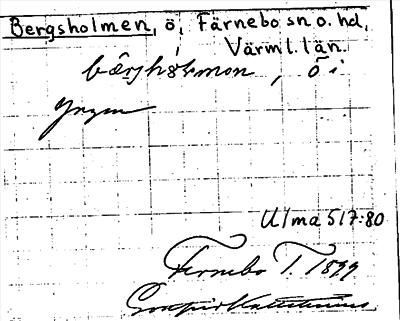 Bergsholmen, ö, Färnebo sn o. hd,
Värml. län.
bärjholmən, ö i
Yngen
Ulma 517:80
Fernebo T. 1899